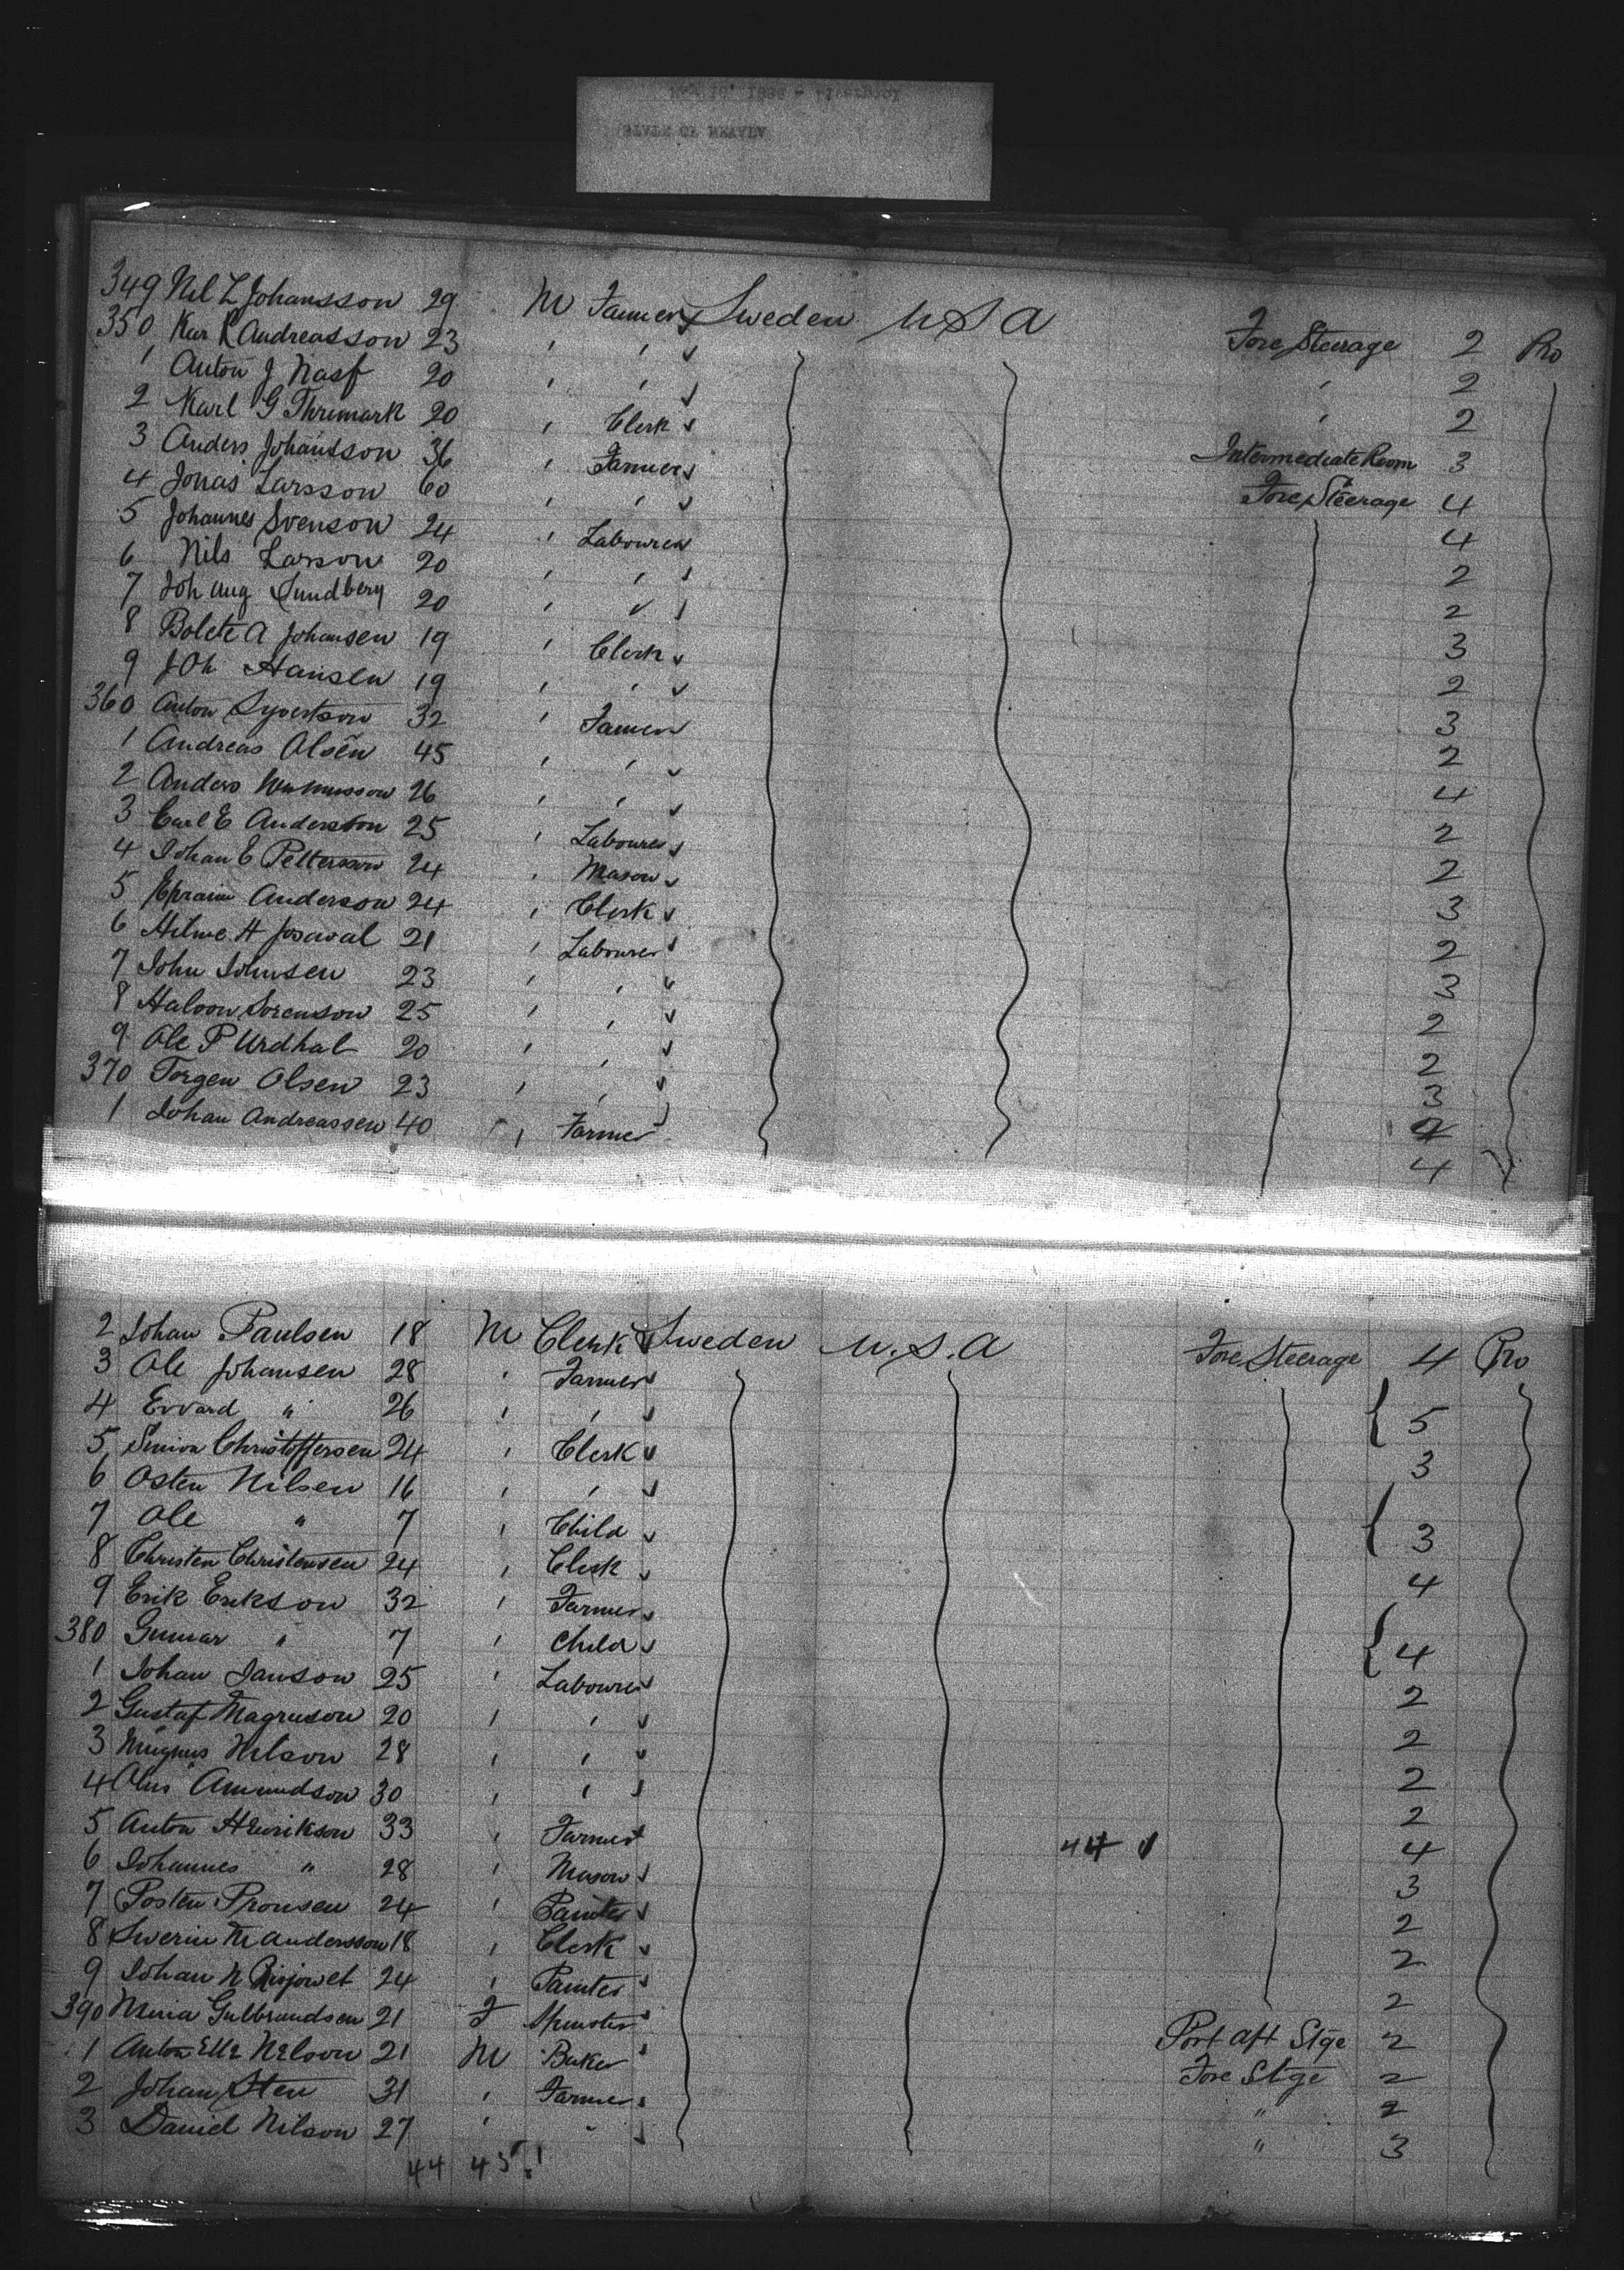 349 Nil L Johansson 29 M Farmer Sweden U S A Fore Steerage 2 Pro
350 Kar R Andreasson 23 " " 2
1 Anton J Nasf 20 " " 2
2 Karl G Thrumark 20 " Clerk Intermediate Room 3
3 Anders Johansson 36 " Farmer Fore Steerage 4
4 Jonas Larsson 60 " " 4
5 Johannes Svenson 24 " Labourer 2
6 Nils Larson 20 " " 2
7 Joh Aug Sundberg 20 " " 3
8 Bolete A Johansen 19 " Clerk 2
9 Joh Hansen 19 " " 3
360 Anton Syvertson 32 " Farmer 2
1 Andreas Olsen 45 " " 4
2 Anders 26 " " 2
3 Carl E Anderston 25 " Labourer 2
4 Johan E Pettersson 24 " Mason 3
5 Epraim Anderson 24 " Clerk 2
6 Hilme H 21 " Labourer 3
7 John Johnsen 23 " " 2
8 Haloon Sorenson 25 " " 2
9 Ole P Urdhal 20 " " 3
370 Torgen Olsen 23 " "
1 Johan Andreassen 40 " Farmer 4
2 Johan Paulsen 18 M Clerk Sweden U.S.A Fore Steerage 4 Pro
3 Ole Johansen 28 " Farmer
4 Evvard " 26 " " 5
5 Simon Christoffersen 24 " Clerk 3
6 Osten Nilsen 16 " "
7 Ole " 7 " Child 3
8 Christen Christensen 24 " Clerk 4
9 Erik Erikson 32 " Farmer
380 Gunnar " 7 " Child 4
1 Johan Janson 25 " Labourer 2
2 Gustaf Magnuson 20 " " 2
3 Magnus Nelson 28 " " 2
4 Olus Amundson 30 " " 2
5 Anton Henrikson 33 " Farmer 44 4
6 Johannes " 28 " Mason 3
7 Posten Pronsen 24 " Painter 2
8 Swerin M Andersson 18 " Clerk 2
9 Johan N 24 " Painter 2
390 Mina Gulbrandsen 21 F Spinster Port Aft Stge 2
1 Anton Elle Nelson 21 M Baker Fore Stge 2
2 Johan Sten 31 " Farmer " 2
3 Daniel Nilson 27 " " " 3
44 43 . 1